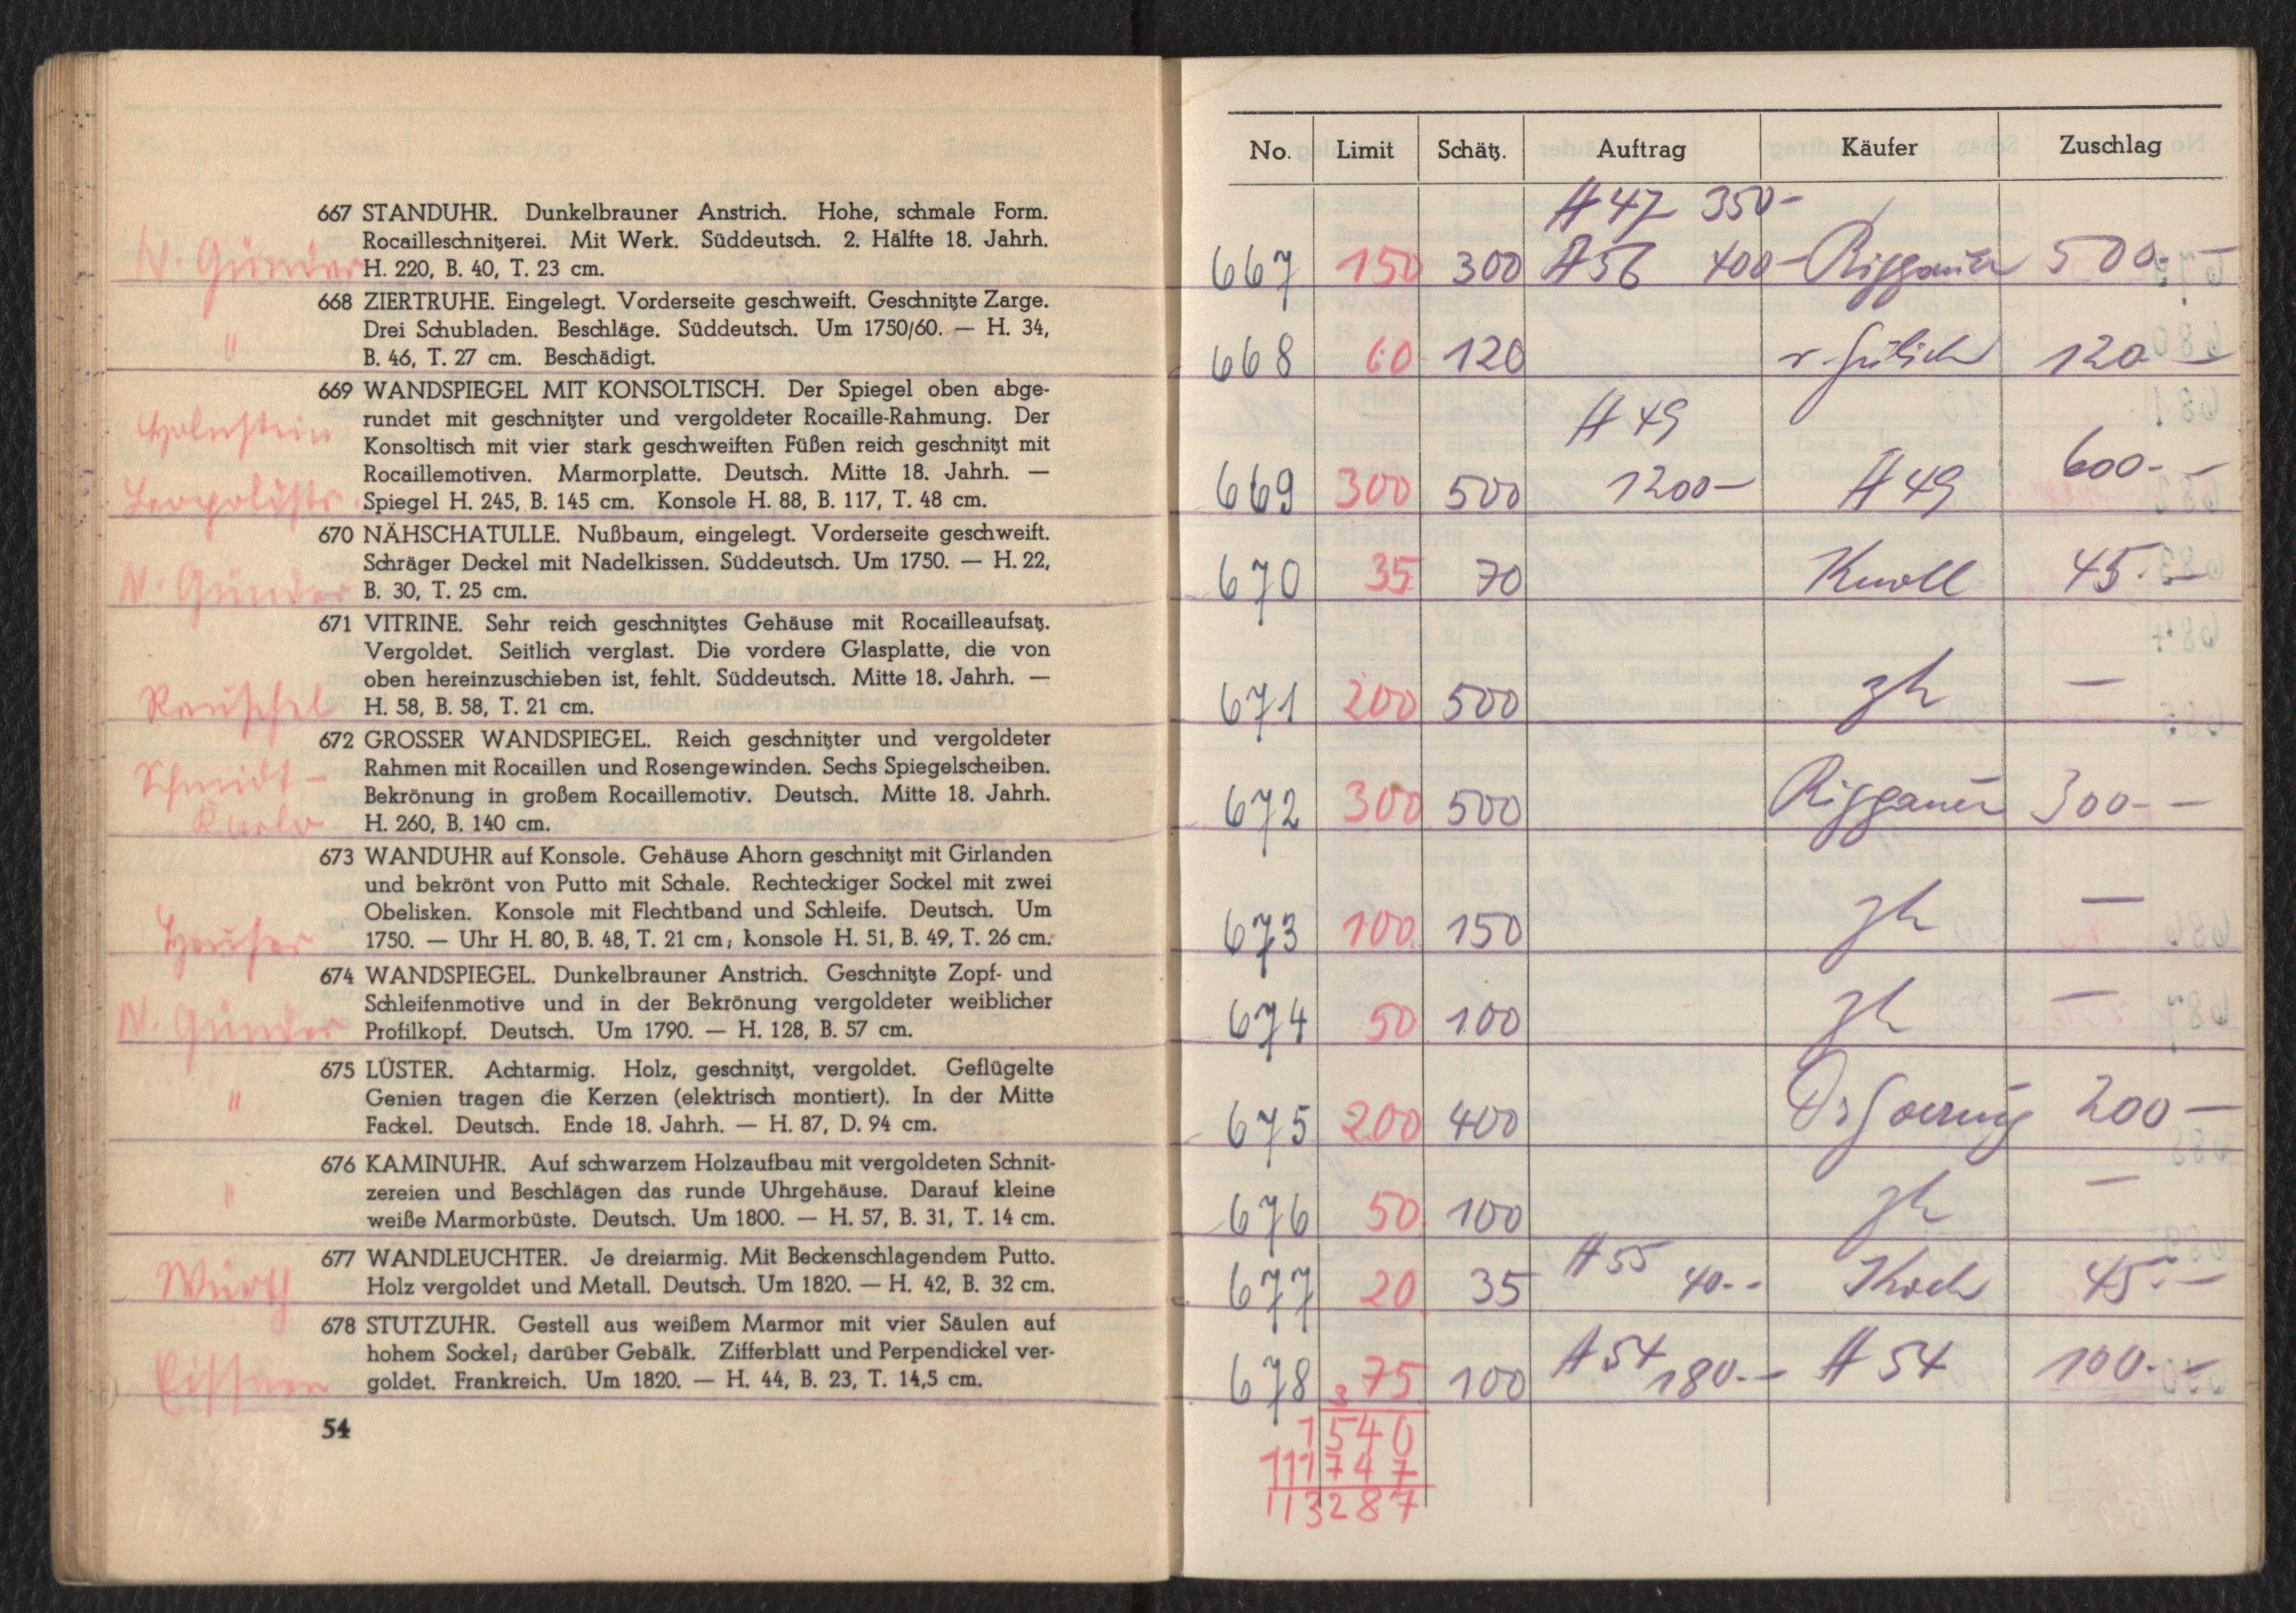 667 STANDUHR. Dunkelbrauner Anstrich. Hohe, schmale Form.
Rocailleschnitzerei. Mit Werk. Süddeutsch. 2. Hälfte 18. Jahrh.
H. 220, B. 40, T. 23 cm.
668 ZIERTRUHE. Eingelegt. Vorderseite geschweift. Geschnitzte Zarge.
Drei Schubladen. Beschläge. Süddeutsch. Um 1750/60. — H. 34,
"
B. 46, T. 27 cm. Beschädigt.
669 WANDSPIEGEL MIT KONSOLTISCH. Der Spiegel oben abge-
rundet mit geschnitzter und vergoldeter Rocaille-Rahmung. Der
Holnstein
Konsoltisch mit vier stark geschweiften Füßen reich geschnitzt mit
Rocaillemotiven. Marmorplatte. Deutsch. Mitte 18. Jahrh. —
Leopoldstr.
Spiegel H. 245, B. 145 cm. Konsole H. 88, B. 117, T. 48 cm.
670 NÄHSCHATULLE. Nußbaum, eingelegt. Vorderseite geschweift.
Schräger Deckel mit Nadelkissen. Süddeutsch. Um 1750. — H. 22,
B. 30, T. 25 cm.
671 VITRINE. Sehr reich geschnitztes Gehäuse mit Rocailleaufsatz.
Vergoldet. Seitlich verglast. Die vordere Glasplatte, die von
oben hereinzuschieben ist, fehlt. Süddeutsch. Mitte 18. Jahrh. —
Reuschel
H. 58, B. 58, T. 21 cm.
672 GROSSER WANDSPIEGEL. Reich geschnitzter und vergoldeter
Rahmen mit Rocaillen und Rosengewinden. Sechs Spiegelscheiben.
Schmidt-
Bekrönung in großem Rocaillemotiv. Deutsch. Mitte 18. Jahrh.
H. 260, B. 140 cm.
673 WANDUHR auf Konsole. Gehäuse Ahorn geschnitzt mit Girlanden
und bekrönt von Putto mit Schale. Rechteckiger Sockel mit zwei
Obelisken. Konsole mit Flechtband und Schleife. Deutsch. Um
1750. — Uhr H. 80, B. 48, T. 21 cm; Konsole H. 51, B. 49, T. 26 cm.
674 WANDSPIEGEL. Dunkelbrauner Anstrich. Geschnitzte Zopf- und
Schleifenmotive und in der Bekrönung vergoldeter weiblicher
Profilkopf. Deutsch. Um 1790. — H. 128, B. 57 cm.
675 LÜSTER. Achtarmig. Holz, geschnitzt, vergoldet. Geflügelte
" Genien tragen die Kerzen (elektrisch montiert). In der Mitte
Fackel. Deutsch. Ende 18. Jahrh. — H. 87, D. 94 cm.
676 KAMINUHR. Auf schwarzem Holzaufbau mit vergoldeten Schnit-
" zereien und Beschlägen das runde Uhrgehäuse. Darauf kleine
weiße Marmorbüste. Deutsch. Um 1800. — H. 57, B. 31, T. 14 cm.
677 WANDLEUCHTER. Je dreiarmig. Mit Beckenschlagendem Putto.
Würth
Holz vergoldet und Metall. Deutsch. Um 1820. — H. 42, B. 32 cm.
678 STUTZUHR. Gestell aus weißem Marmor mit vier Säulen auf
hohem Sockel; darüber Gebälk. Zifferblatt und Perpendickel ver-
goldet. Frankreich. Um 1820. — H. 44, B. 23, T. 14,5 cm.
54
No. Limit Schätz. Auftrag Käufer Zuschlag
H 47 350-
667 150 300 H 56 400- Riggauer 500.-
668 60 120 120 -
H 49
669 300 500 1200- H 49 600.-
670 35 70 Knoll 45.-
671 200 500 zk —
672 300 500 Riggauer 300.-
673 100 150 zk —
674 50 100 zk —
675 200 400 Dr Goering 200 -
676 50 100 zk —
677 20 35 H 55 40.- Koch 45.-
678 75 100 H 54 180.- H 54 100.-
3
1540
111747
113287